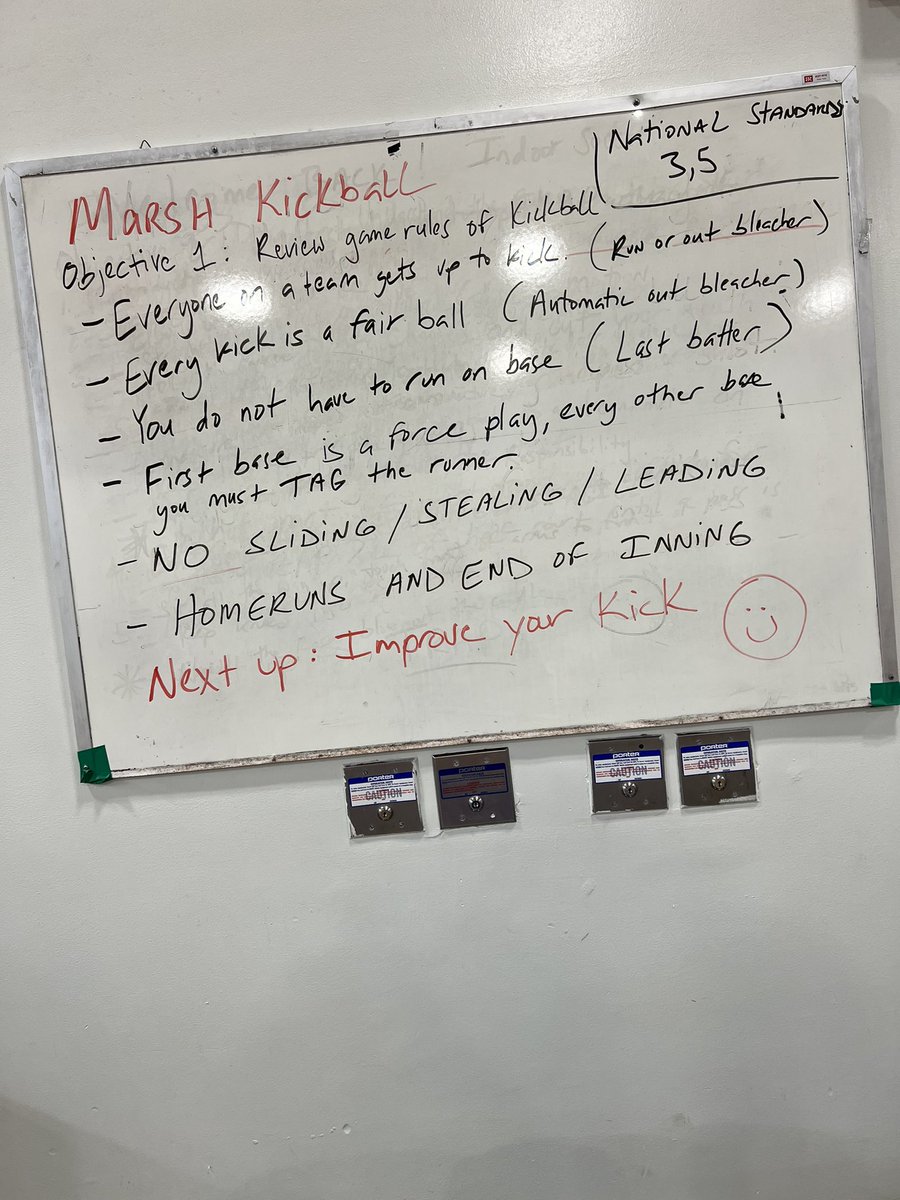 National Standards
3,5
Marsh Kickball
Objective 1: Review game rules of Kickball
- Everyone on a team gets up to kick. (Run or out bleacher)
- Every kick is a fair ball (Automatic out bleacher)
- You do not have to run on base (Last batter)
- First base is a force play, every other base !
you must TAG the runner.
- NO SLIDING / STEALING / LEADING
- HOMERUNS AND END OF INNING
Next up: Improve your Kick
porter
CAUTION
porter
porter
CAUTION
porter
CAUTION